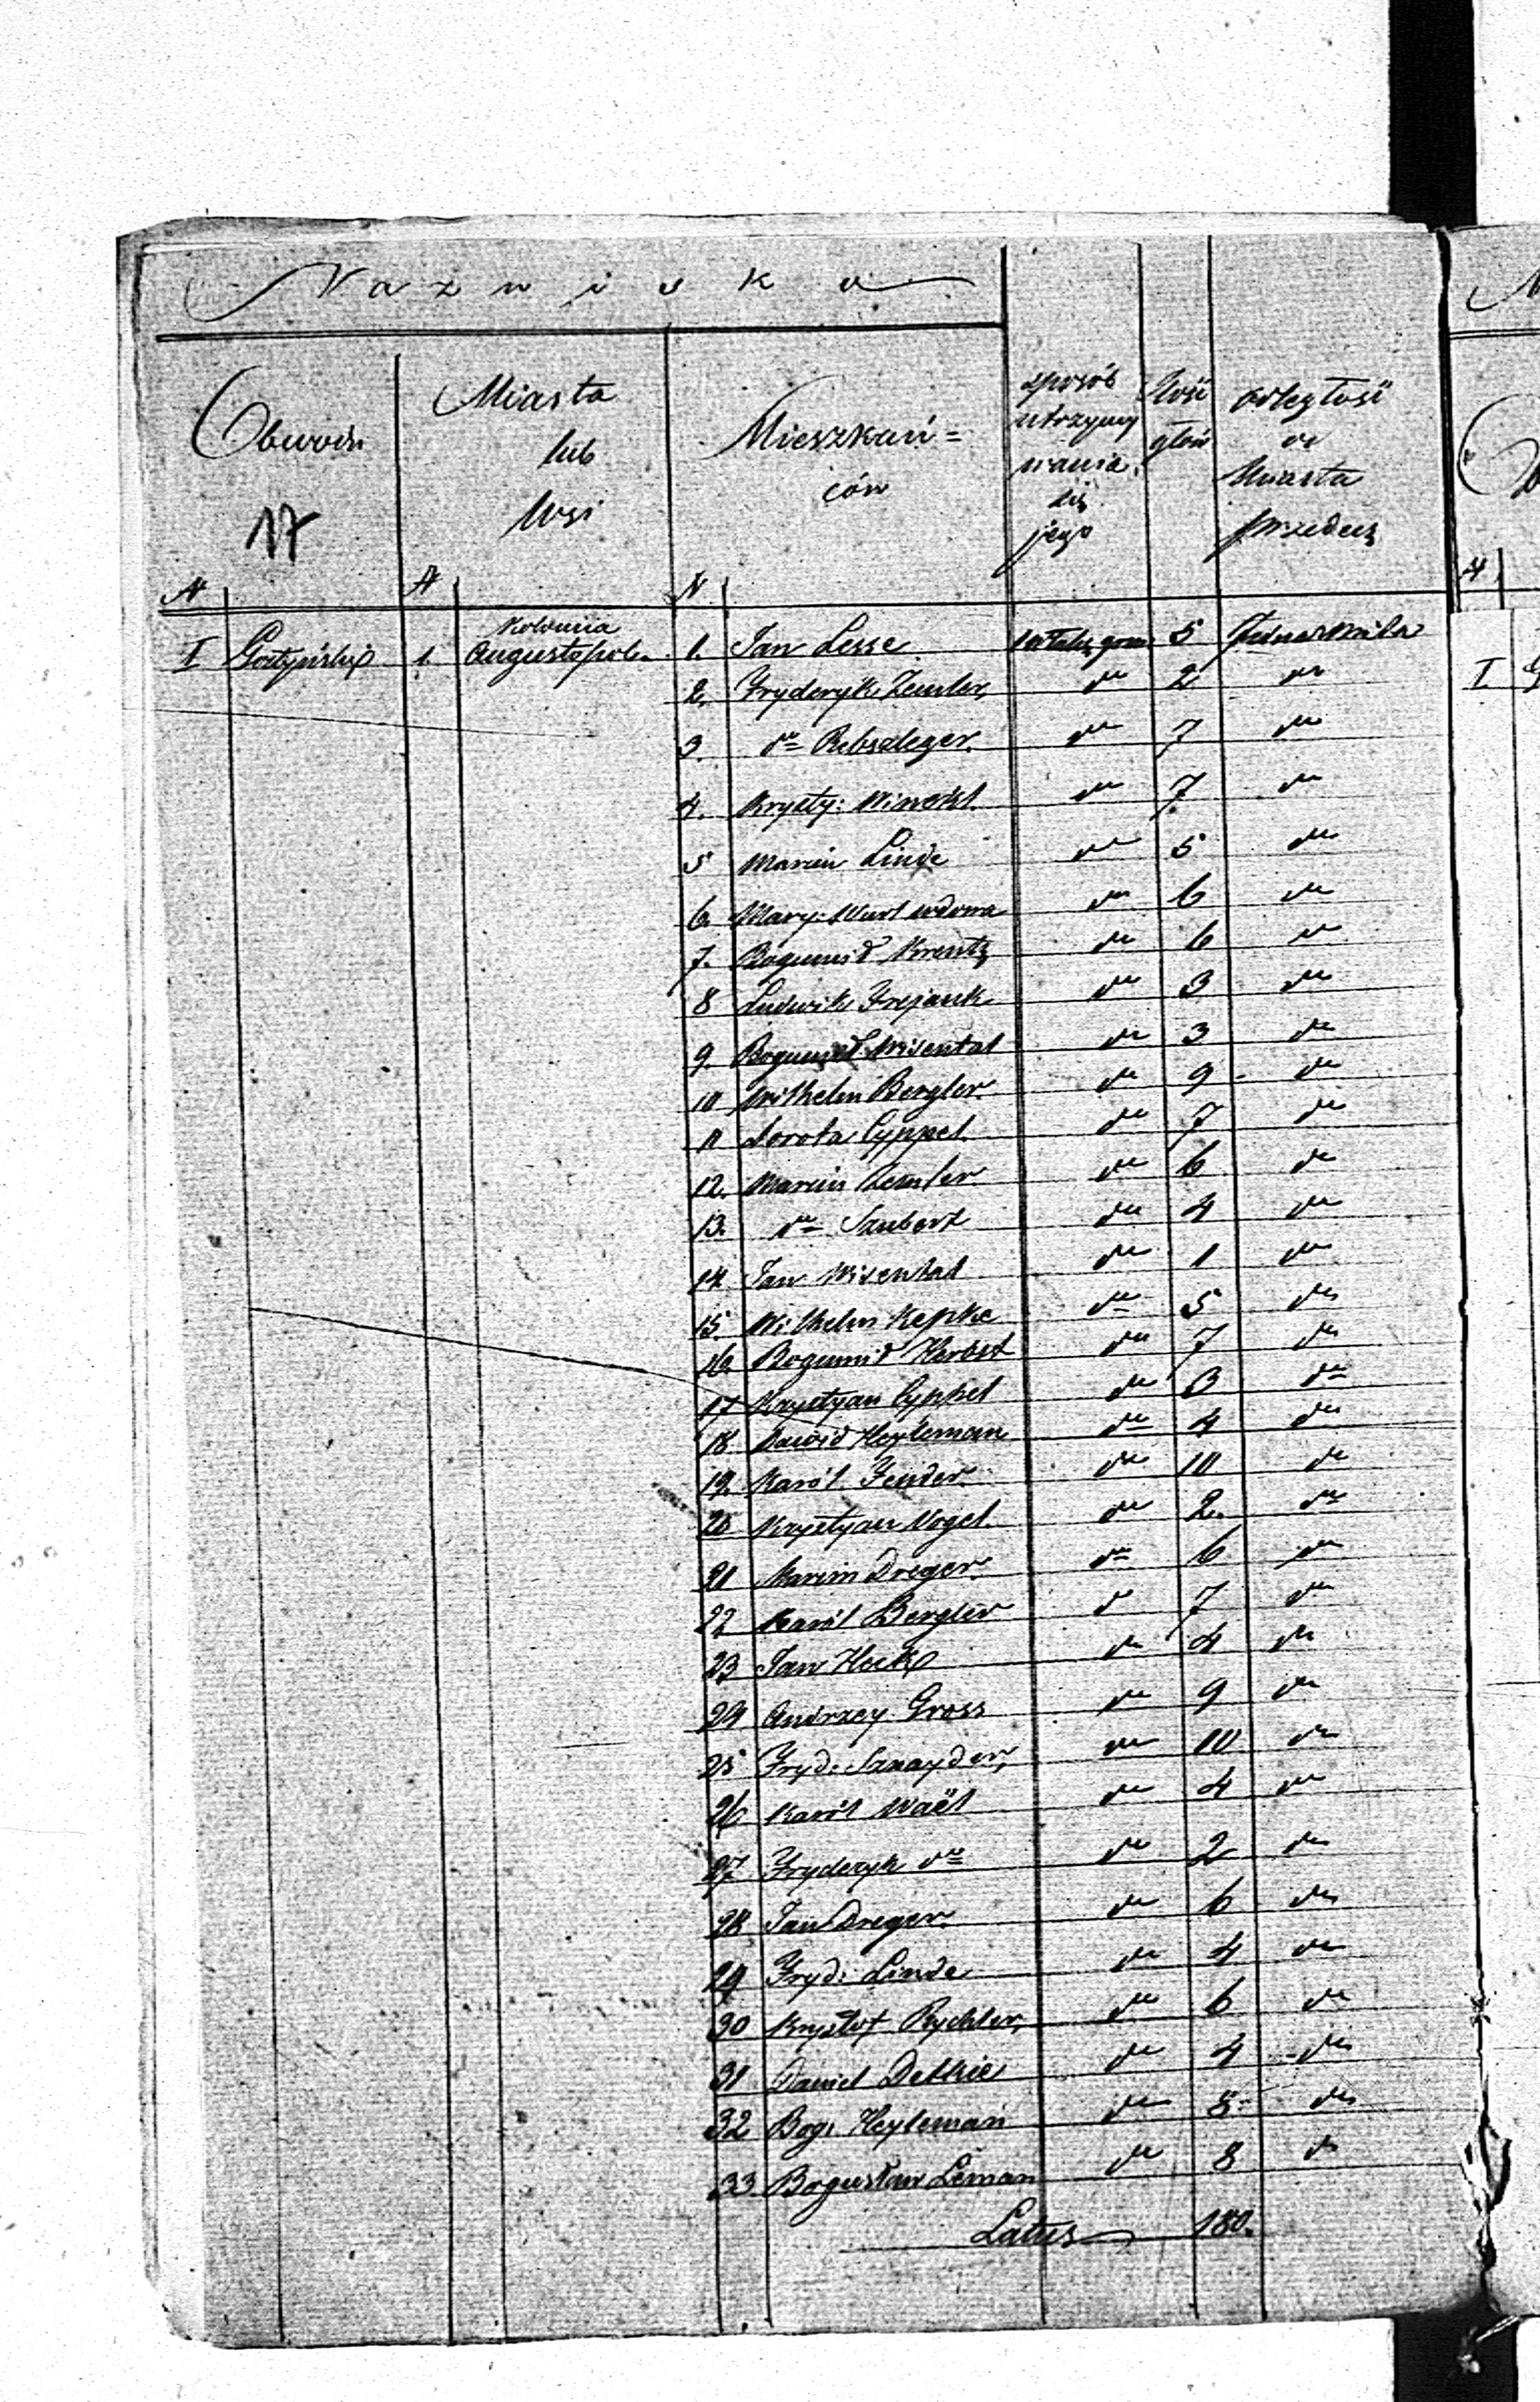 Nazwisko
Obwodu
Miasta
lub
Wsi
Mieszkań=
ców
sposób
utrzymy
wania
się
jego
Ilość
głów
odległość
od
Miasta
Przedecz
17
N N N
I Gostyński 1. Kolonia Augustopol 1. Jan Lesse 5 Jedna mila
2. Fryderyk Zemler do 2 do
3. do Rebszleger do 7 do
4. Krysty: do 7 do
5 Marcin Linde do 5 do
6. Mary: Wurl wdowa do 6 do
7. Bogumił Krentz do 6 do
8 Ludwik Frejank do 3 do
9. Bogumił Wisental do 3 do
10 Wilhelm Bergler do 9 do
11 Dorota Cyppel do 7 do
12. Marcin Zemler do 6 do
13. do Szubert do 4 do
14 Jan Wisental do 1 do
15. Wilhelm Kepke do 5 do
16. Bogumił Herbst do 7 do
17 Krystyan Cyppel do 3 do
18 Dawid Heyleman do 4 do
19. Karól Fender do 10 do
20 Krystyan Vogel do 2. do
21 Marcin Dreger do 6 do
22 Karól Bergler do 7 do
23 Jan Heck do 4 do
24 Andrzey Gross do 9 do
25 Fryd: Sznayder do 10 do
26 Karól Waël do 4 do
27. Fryderyk do do 2 do
28 Jan Dreger do 6 do
29 Fryd: Linde do 4 do
30 Krysztof Rychler do 6 do
31 Daniel do 4 do
32 Bog: Heyleman do 8 do
33. Bogusław Leman do 8 do
Latus 180.
I